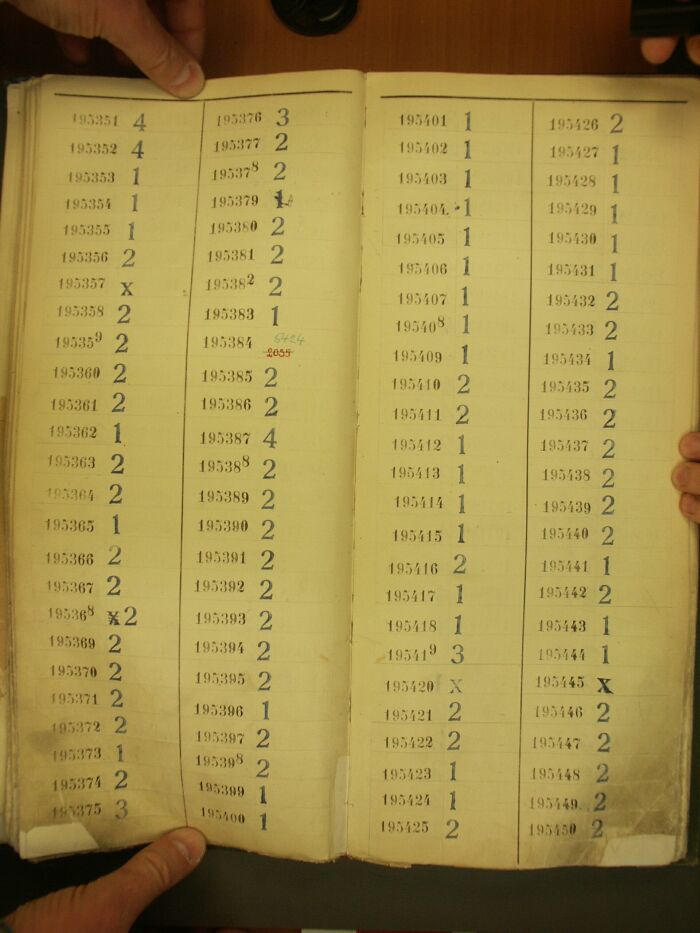 195351 4
195352 4
195353 1
195354 1
195355 1
195356 2
195357 x
195358 2
195359 2
195360 2
195361 2
195362 1
195363 2
195364 2
195365 1
195366 2
195367 2
195368 x2
195369 2
195370 2
195371 2
195372 2
195373 1
195374 2
195375 3
195376 3
195377 2
195378 2
195379 1
195380 2
195381 2
195382 2
195383 1
195384
2055
195385 2
195386 2
195387 4
195388 2
195389 2
195390 2
195391 2
195392 2
195393 2
195394 2
195395 2
195396 1
195397 2
195398 2
195399 1
195400 1
195401 1
195402 1
195403 1
195404 1
195405 1
195406 1
195407 1
195408 1
195409 1
195410 2
195411 2
195412 1
195413 1
195414 1
195415 1
195416 2
195417 1
195418 1
195419 3
195420 x
195421 2
195422 2
195423 1
195424 1
195425 2
195426 2
195427 1
195428 1
195429 1
195430 1
195431 1
195432 2
195433 2
195434 1
195435 2
195436 2
195437 2
195438 2
195439 2
195440 2
195441 1
195442 2
195443 1
195444 1
195445 x
195446 2
195447 2
195448 2
195449 2
195450 2